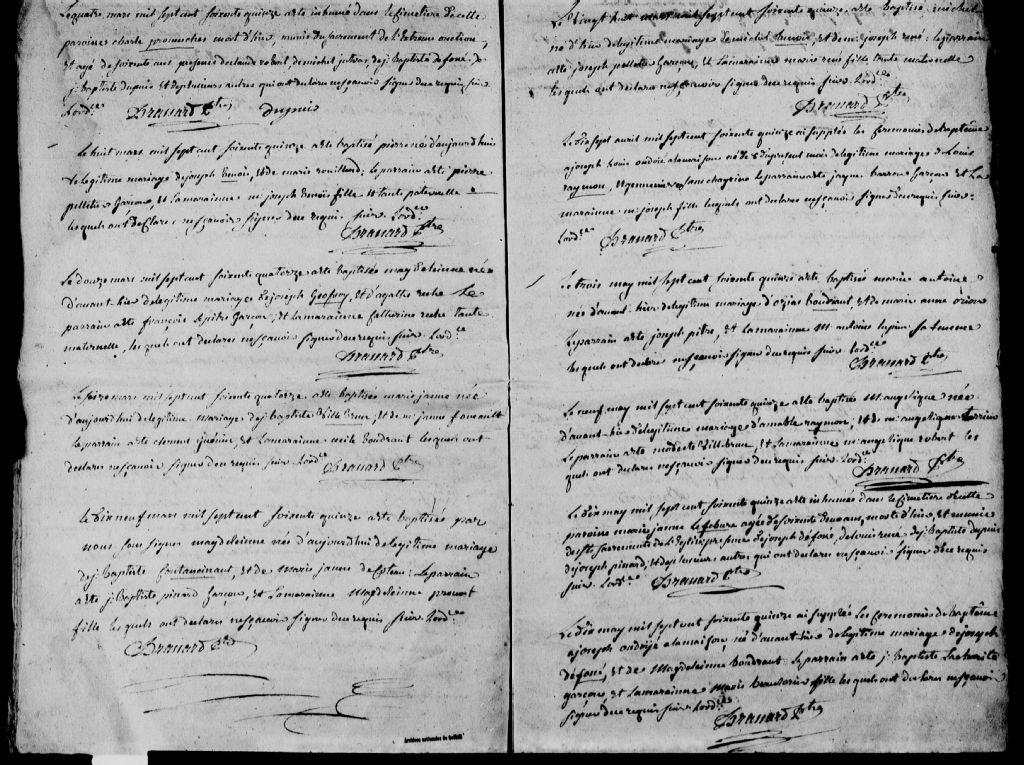 Le quatre mars mil sept cent soixante quinze a été inhumé dans le Cimetiere de cette
paroisse mort d'hier, muni du sacrement de l'Extreme onction,
Et agé de soixante ans presence de
j: Baptiste dupuis et de plusieurs autres qui ont declaré ne sçavoir signer de ce requis suiv
L'ord.ce Brouard Ptre dupuis
Le huit mars mil sept cent soixante quinze a été baptisé pierre né d'aujourd'huie
de legitime mariage de joseph Benoit, et de marie rouillard, le parrain a été pierre
pelletié Garçon, et la maraine m: joseph Benoit fille et tante paternelle
lesquels ont declarés ne sçavoir signer de ce requi. suiv L'ord.ce
Brouard Ptre
Le douze mars mil sept cent soixante quatorze a été Baptisée
d'avant hier de legitime mariage de joseph Geofroy, et d'agathe Le
parrain a été françois Garçon, et la marainne tante
maternelle, lesquels ont declarés ne sçavoir signer de ce requis suiv L'ord.ce
Brouard Ptre
Le seize mars mil sept cent soixante quatorze a été baptisée marie jeanne née
d'aujourd'hui de legitime mariage de j: baptiste Ville Brun, et de m: jeanne foucault
Le parrain a été clement et la marainne cecile Boudraut lesquels ont
declarés ne sçavoir signer de ce requis suiv L'ord.ce Brouard Ptre
Le dix neuf mars mil sept cent soixante quinze a été baptisée par
nous sous signes magdelainne née d'aujourd'hui de legitime mariage
de j: Baptiste et de Marie jeanne Le parrain
a été j: Baptiste pinard Garçon, et La marainne Magdeleinne
fille lesquels ont declarés ne sçavoir signer de ce requis suiv L'ord.ce
Brouard Ptre
Archives nationales du Québec
Le vingt huit mars mil sept cent soixante quinze a été Baptisé michel
né d'hier de legitime mariage de michel Benoit, et de m: joseph rené: le parrain
a été joseph pelletié Garçon, et La marainne marie rené fille tante maternelle
lesquels ont declarés ne sçavoir signer de ce requis suiv L'ord.ce
Brouard Ptre
Le dix sept avril mil sept cent soixante quinze ai supplée les Ceremonies de Baptême
a joseph Louis ondoié a la maison né le du present mois de legitime mariage de Louis
raymon, le parrain a été Garçon et La
marainne m: joseph fille lesquels ont declarés ne sçavoir signer de ce requis suiv-
L'ord.ce Brouard Ptre
Le trois may mil sept cent soixante quinze a été baptisée marie antoine
née d'avant hier de legitime mariage d'ozias boudraut, et de marie anne
Le parrain a été joseph pitre, et La marainne M: antoine Lupin
lesquels ont declaré ne sçavoir signer de ce requis suiv L'ord.ce
Brouard Ptre
Le neuf may mil sept cent soixante quinze a été baptisée M: angelique née
d'avant hier de legitime mariage d'amable raymon, et de m: angelique
Le parrain a été modeste Villebrun, et La marainne m: angelique robert les
quels ont declarés ne sçavoir signer de ce requis suiv L'ord.ce
Brouard Ptre
Le dix may mil sept cent soixante quinze a été inhumée dans le Cimetiere de cette
paroisse marie jeanne Lefebure agée de soixante deux ans, morte d'hier, et munie
des sts sacrements de L'Eglise presence de joseph j: Baptiste dupuis
de joseph pinard, et de plusieurs autres qui ont declaré ne sçavoir signer de ce requis
suiv L'ord.ce Brouard Ptre
Le dix may mil sept cent soixante quinze ai supplée Les Ceremonies de Baptême
a joseph ondoié a la maison, né d'avant hier de legitime mariage de joseph
et de Magdeleinne Boudraut: le parrain a été j: Baptiste
garçon, et La marainne Marie fille lesquels ont declarés ne sçavoir
signer de ce requis suiv L'ord.ce
Brouard Ptre